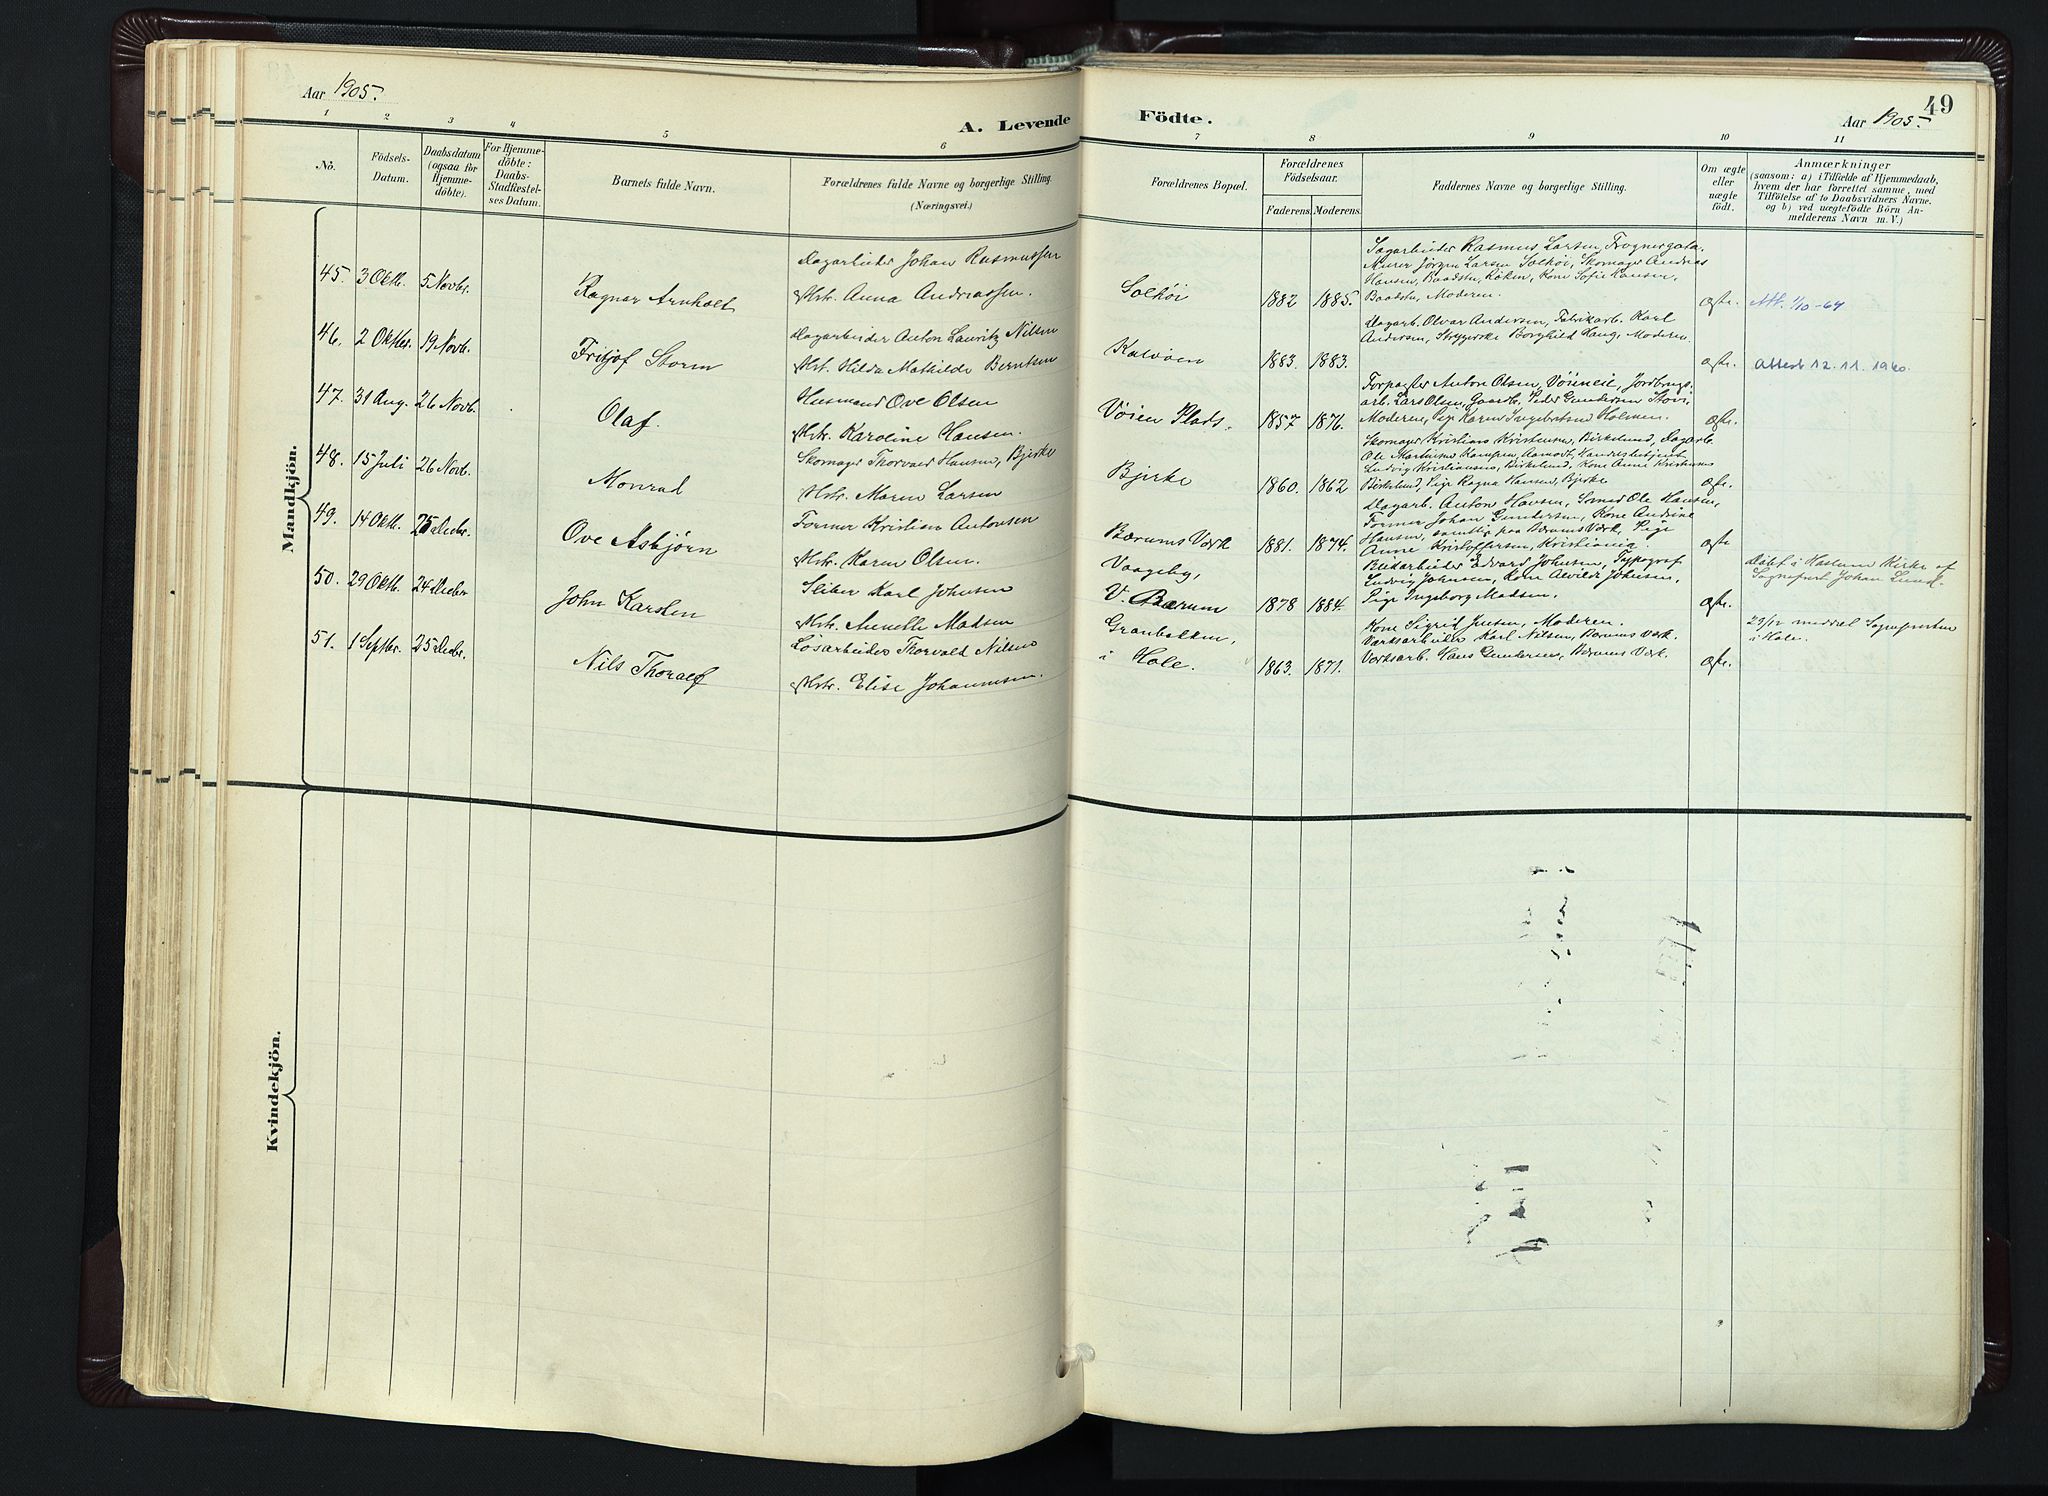 Aar 1905.
A. Levende Födte.
Aar 1905.
49
1 2 3 4 5 6 7 8 9 10 11
No.
Födsels-
Datum.
Daabsdatum
(ogsaa for
Hjemme-
döbte).
For Hjemme-
döbte:
Daabs-
Stadfæstel-
ses Datum.
Barnets fulde Navn.
Forældrenes fulde Navne og borgerlige Stilling.
(Næringsvei.)
Forældrenes Bopæl.
Forældrenes
Födselsaar.
Faderens.
Moderens.
Faddernes Navne og borgerlige Stilling.
Om ægte
eller
uægte
födt.
Anmærkninger
(saasom: a) i Tilfælde af Hjemmedaab,
hvem der har forrettet samme, med
Tilföielse af to Daabsvidners Navne.
og b) ved uægtefödte Börn An-
melderens Navn m. V.)
Mandkjön.
45. 3 Oktb. 5 Novbr. Ragnar Arnholt
Dagarbeider Johan Rasmussen
Hstr. Anna Andreassen.
Solhöi
1882 1885.
Sagarbeider Rasmus Larsen, Frognergata.
Murer Jörgen Larsen Solhöi, Skomager Andreas
Hansen, Baadstø, Röken, Kone Sofie Hansen,
Baadstø, Moderen.
ægte. Att. 1/10-64
46. 2 Oktbr. 19 Novb. Fritjof Storm
Dagarbeider Anton Lauritz Nilsen
Hst. Hilda Mathilde Berntsen
Kalvöen
1883. 1883.
Dagarb. Olvar Andersen, Fabrikarb. Karl
Andersen, Strygerske Borghild Haug, Moderen.
ægte. Attest 12.11.1960.
47. 31 Aug. 26 Novb. Olaf.
Husmand Ove Olsen
Hstr. Karoline Hansen.
Vöien Plads.
1857 1876.
Forpagter Anton Olsen, Vöieneie, Jordbrugs-
arb. Lars Olsen, Gaardb. Peder Gundersen Stovi,
Moderen, Pige Karen Ingebretsen Holmen.
ægte.
48. 15 Juli 26 Novb. Monrad
Skomager Thorvald Hansen, Bjerke
Hstr. Maren Larsen
Bjerke
1860. 1862
Skomager Kristians Kristensen, Birkelund, Dagarb.
Ole Martinsen Kampen, Aamodt, Handelsbetjent
Ludvig Kristiansen, Birkelund, Kone Anne Kristensen
Birkelund, Pige Ragna Hansen, Bjerke
æte.
49. 14 Oktb. 25 Decbr. Ove Asbjörn
Former Kristian Antonsen
Hstr. Karen Olsen.
Bærums Værk
1881. 1874.
Dagarb. Anton Hansen, Smed Ole Hansen,
Former Johan Gundersen, Kone Andrine
Hansen, samtlige paa Bærums Værk, Pige
Anne Kristoffersen, Kristiania
ægte
50. 29 Oktb. 24 Decbr John Karsten
Sliber Karl Johnsen
Hstr. Annette Madsen
Vaageby,
V. Bærum
1878 1884.
Blikarbeider Edvard Johnsen, Typograf
Ludvig Johnsen, Kone Alvilde Johnsen,
Pige Ingeborg Madsen.
ægte.
Döbt i Haslum Kirke af
Sognepræst Johan Lund.
51. 1 Septbr. 25 Decbr. Nils Thoralf
Lösarbeider Thorvald Nilsen
Hstr. Elise Johannesen.
Granbakken,
i Hole.
1863. 1871.
Kone Sigrid Jensen, Moderen.
Værksarbeider Karl Nilsen, Bærums Værk.
Værksarb. Hans Gundersen, Bærums Værk.
ægte.
29/12 meddelt Sognepresten
i Hole.
Kvindekjön.